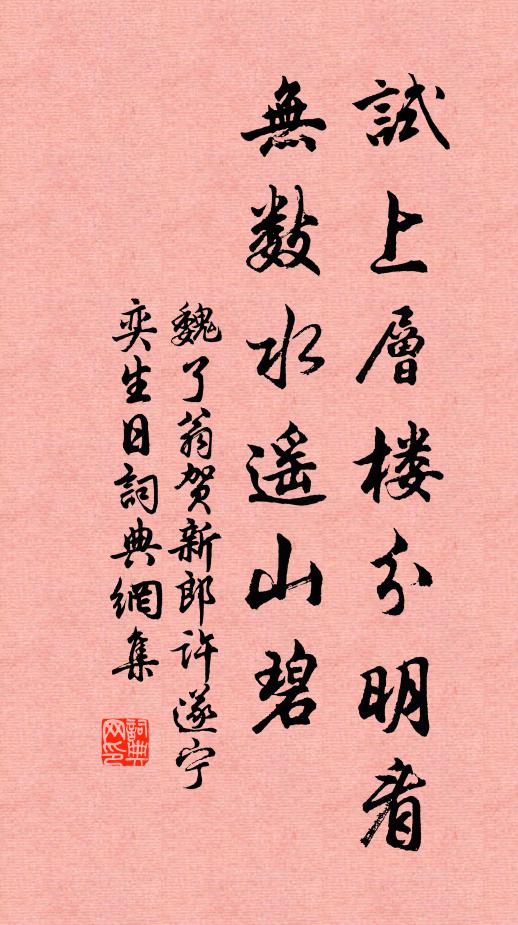 試上層楼分明看
無数水遥山碧
魏了翁贺新郎许遂宁
奕生日詞典網集
詞典網印